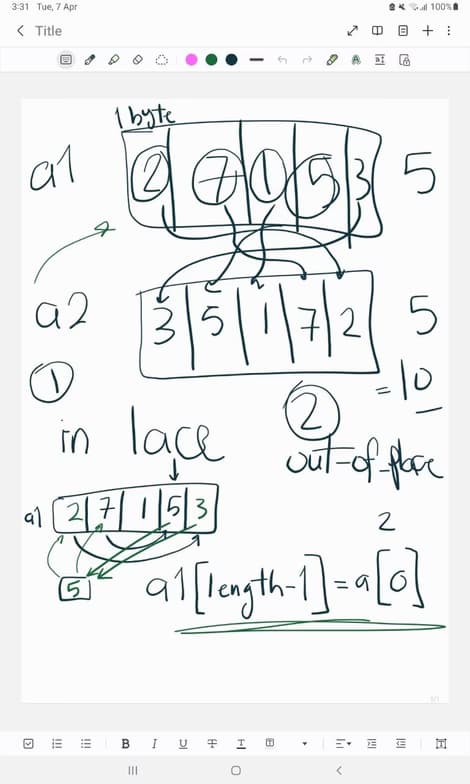 3:31 Tue, 7 Apr 100%
Title
1 byte
a1 2 7 1 5 3 5
a2 3 5 1 7 2 5
= 10
1
2
in lace
out-of-place
a1 2 7 1 5 3
2
5
a1[length-1] = a[0]
1/1
B I U T T